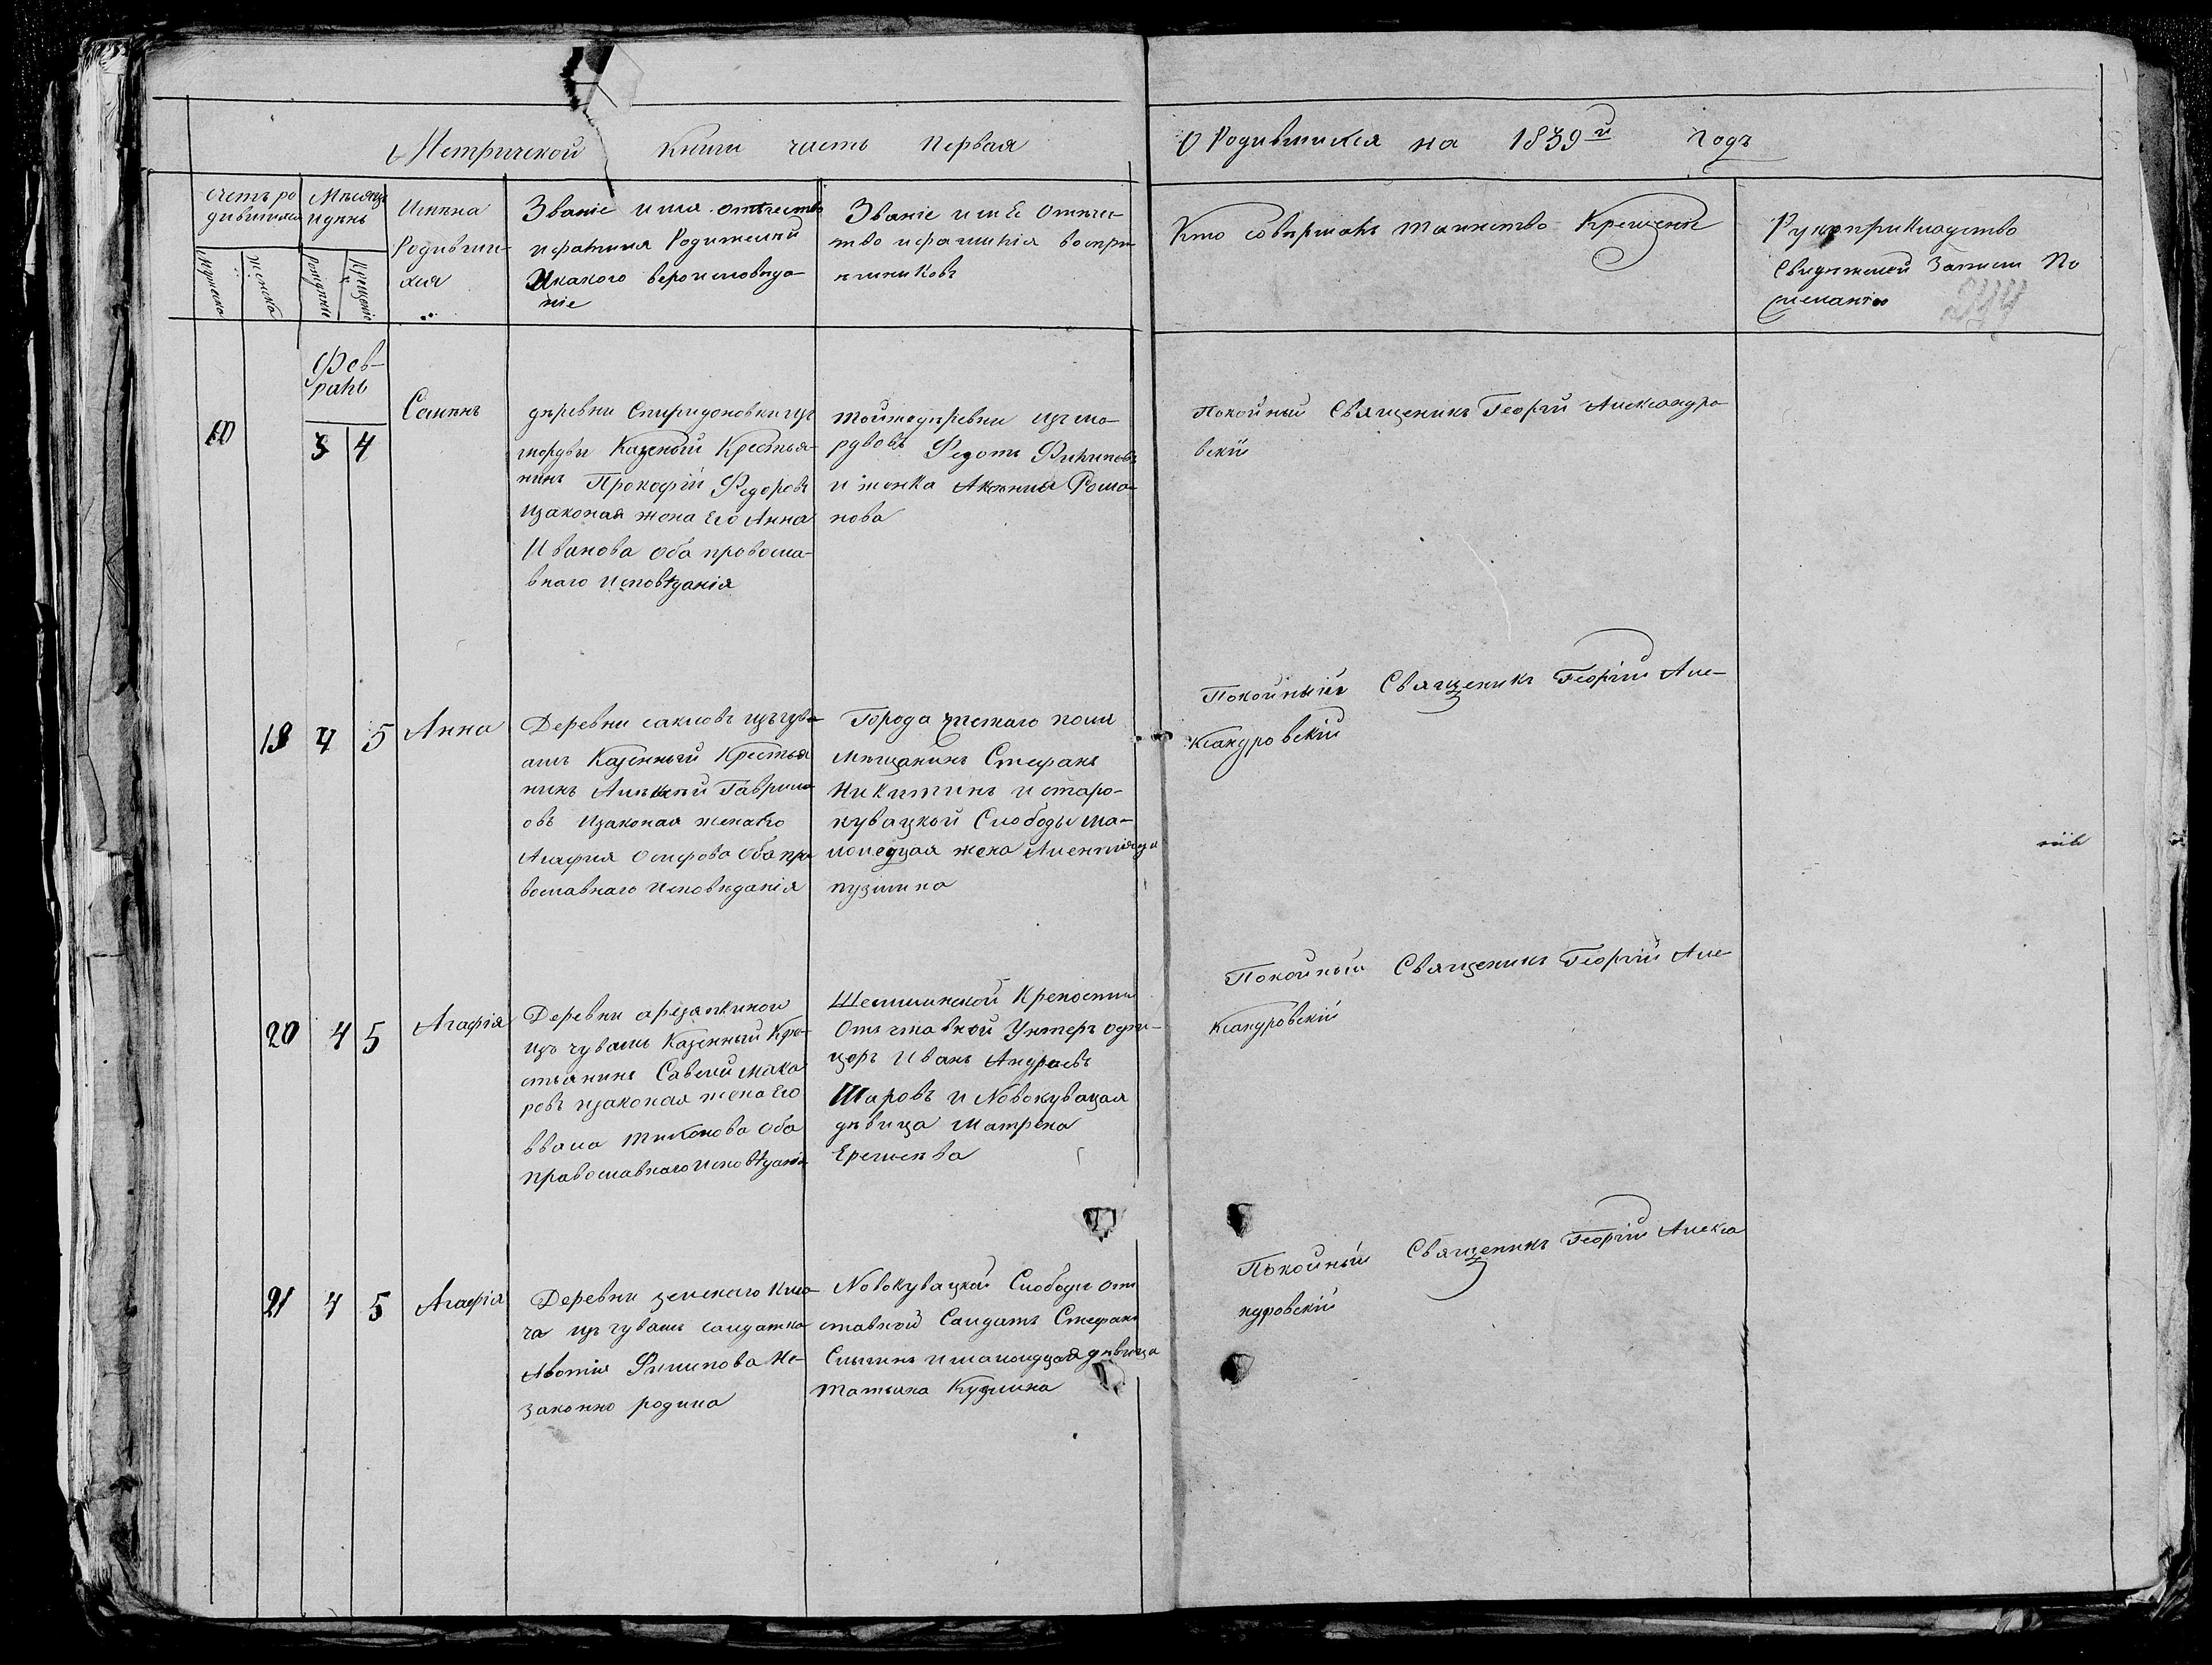 Метрической книги часть первая
О Родившихся на 1839й годъ
Счетъ ро
дившихся
Мужеска
Женска
Месяцъ
и день
Рожденіе
Крещеніе
Имена
Родивши-
хся
Званіе имя отечество
и фамилия Родителей
и какого вероисповеда-
ніе
Званіе имЕ Отече-
тво и фамилія воспри-
емниковъ
Кто совершалъ таинство Крещеніе
Рукоприкладство
Свидетелей Записи По
желанію
244
Фев-
раль
10
3 4
Семенъ
деревни Спиридоновки изъ
мордвы Казеной Крестья-
нинъ Прокофій Федоровъ
изаконая жена Его Анна
Иванова оба провосла-
внаго исповѣданія
тойжедеревни изъ мо-
рдвовъ Федотъ Филиповъ
и женка Аксинія Рома-
нова
Покойный Священикъ Георгій Александро
вскій
19 4 5
Анна
Деревни сакловъ изъ чува-
шъ Казенный Крестья
нинъ Алексей Гаврило
овъ изаконая жена Его
Агафия Осифова Оба пра
вославнаго исповеданія
Города чистаго поля
Мещанинъ Стефанъ
Никитинъ и старо-
кувацкой Слободы ма-
лоледцая жена
кузмина
Покойный Священикъ Георгій Але-
ксандровскій
20 4 5
Агафія
Деревни
изъ чувашъ Казенный Кре-
стьянинъ Савелий Мака
ровъ изаконая жена Его
Тихонова Оба
православнаго исповѣданія
Шешминской Крепости
Отъставной Унтеръ офи-
церъ Иванъ Андреевъ
Шаровъ и Новокувацкая
девица Матрена
Еремеева
Покойный Священикъ Георгій Але-
ксандровскій
21 4 5
Агафія
Деревни земскаго Клю-
ча изъ чувашъ салдатка
Филипова Не-
законно родила
Новокувацкой Слободы От
ставной Салдатъ Стефанъ
и малоледцая девица
Татьяна Кузмина
Покойный Священикъ Георгій Алекса
ндровскій